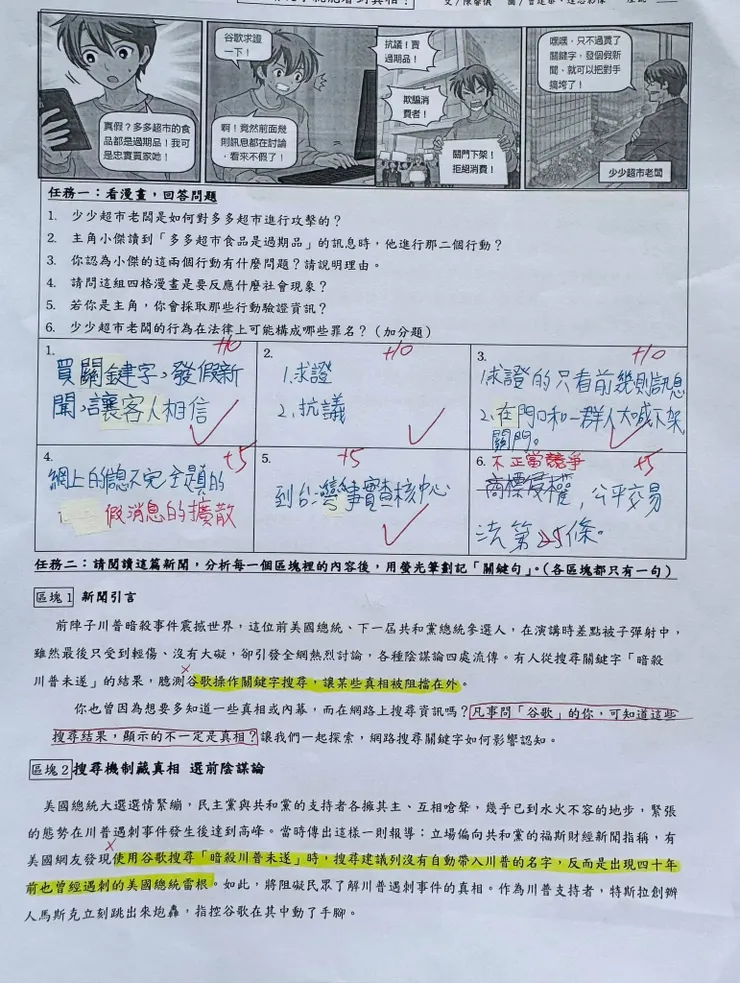 文/陳馨儀
谷歌求證
一下！
真假？多多超市的食
品都是過期品！我可
是忠實買家她！
啊！竟然前面幾
則訊息都在討論
，看來不假了！
抗議！賣
過期品！
欺騙消
費者！
關門下架！
拒絕消費！
嘿嘿，只不過買了
關鍵字，發個假新
聞，就可以把對手
搞垮了！
少少超市老闆
任務一：看漫畫，回答問題
1. 少少超市老闆是如何對多多超市進行攻擊的？
2. 主角小傑讀到「多多超市食品是過期品」的訊息時，他進行那二個行動？
3. 你認為小傑的這兩個行動有什麼問題？請說明理由。
4. 請問這組四格漫畫是要反應什麼社會現象？
5. 若你是主角，你會採取那些行動驗證資訊？
6. 少少超市老闆的行為在法律上可能構成哪些罪名？（加分題）
1. +10
買關鍵字，發假新
聞，讓客人相信
2. +10
1.求證
2.抗議
3. +10
1.求證的只看前幾則訊息
2.在門口和一群人大喊下架
關門。
4. +5
網上的信息不完全是真的
假消息的擴散
5. +5
到台灣事實查核中心
6. 不正當競爭 +5
商標侵權，公平交易
法第25條。
任務二：請閱讀這篇新聞，分析每一個區塊裡的內容後，用螢光筆劃記「關鍵句」。（各區塊都只有一句）
區塊1 新聞引言
前陣子川普暗殺事件震撼世界，這位前美國總統、下一屆共和黨總統參選人，在演講時差點被子彈射中，
雖然最後只受到輕傷、沒有大礙，卻引發全網熱烈討論，各種陰謀論四處流傳。有人從搜尋關鍵字「暗殺
川普未遂」的結果，臆測谷歌操作關鍵字搜尋，讓某些真相被阻擋在外。
你也曾因為想要多知道一些真相或內幕，而在網路上搜尋資訊嗎？凡事問「谷歌」的你，可知道這些
搜尋結果，顯示的不一定是真相？讓我們一起探索，網路搜尋關鍵字如何影響認知。
區塊2 搜尋機制藏真相 選前陰謀論
美國總統大選選情緊繃，民主黨與共和黨的支持者各擁其主、互相嗆聲，幾乎已到水火不容的地步，緊張
的態勢在川普遇刺事件發生後達到高峰。當時傳出這樣一則報導：立場偏向共和黨的福斯財經新聞指稱，有
美國網友發現使用谷歌搜尋「暗殺川普未遂」時，搜尋建議列沒有自動帶入川普的名字，反而是出現四十年
前也曾經遇刺的美國總統雷根。如此，將阻礙民眾了解川普遇刺事件的真相。作為川普支持者，特斯拉創辦
人馬斯克立刻跳出來炮轟，指控谷歌在其中動了手腳。